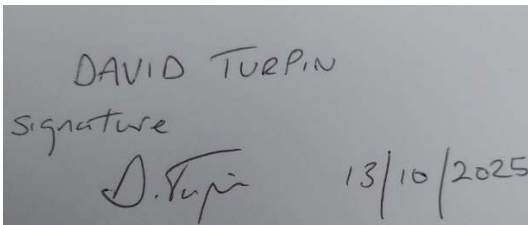 DAVID TURPIN
signature
D. Turpin 13/10/2025